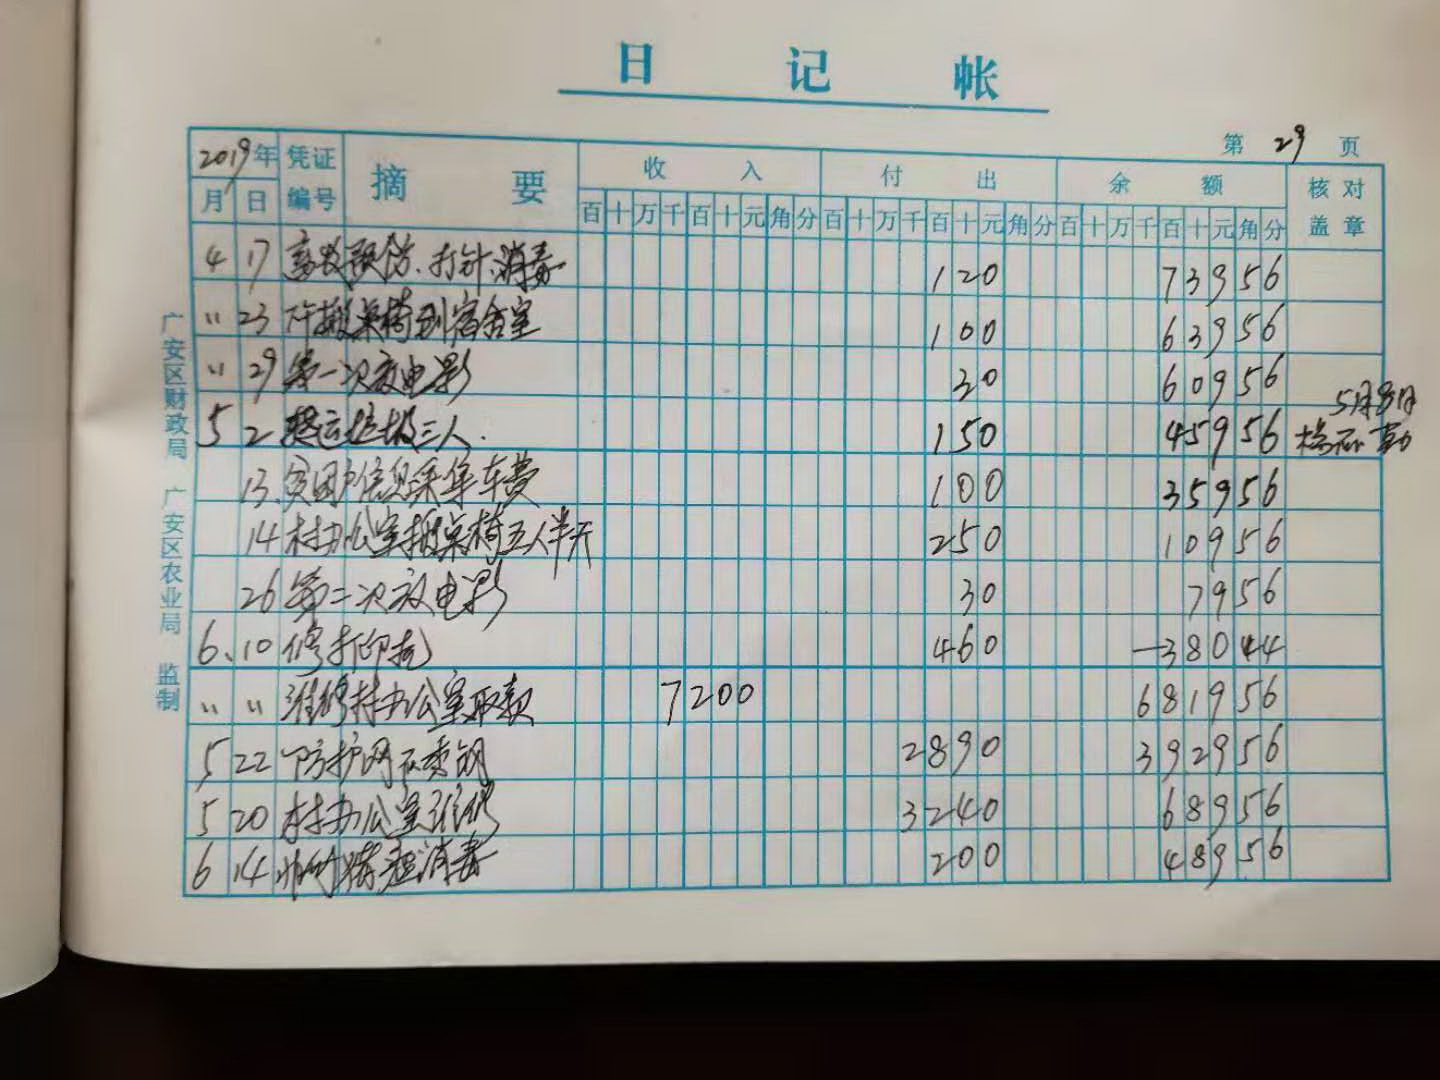 日记帐
第 29 页
2019年 凭证编号 摘要 收入 付出 余额 核对盖章
月 日 百十万千百十元角分 百十万千百十元角分 百十万千百十元角分
4 17 预防、打针、消毒 120 73956
〃 23 搬桌椅到宿舍室 100 63956
〃 29 第一次放电影 30 60956
5月8日
5 2 运垃圾三人. 150 45956
13. 贫困户信息采集车费 100 35956
14 村办公室搬桌椅五人半天 250 10956
26 第二次放电影 30 7956
6. 10 修打印机 460 -38044
〃 〃 维修村办公室取款 7200 681956
5 22 防护网不秀钢 2890 392956
5 20 村办公室维修 3240 68956
6 14 消毒 200 48956
广安区财政局 广安区农业局 监制